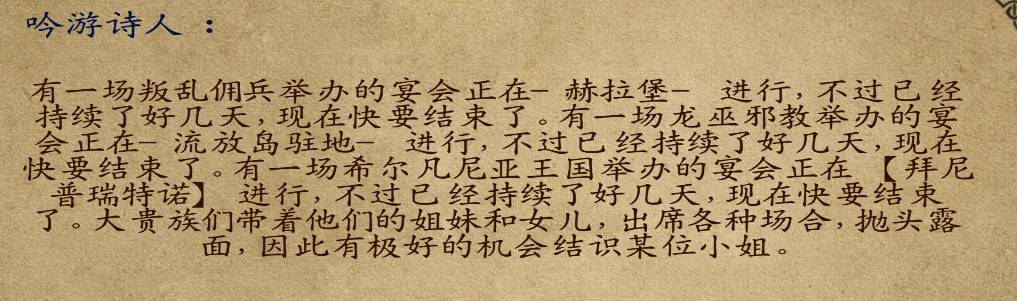 吟游诗人 :
有一场叛乱佣兵举办的宴会正在- 赫拉堡- 进行, 不过已经
持续了好几天, 现在快要结束了。有一场龙巫邪教举办的宴
会正在- 流放岛驻地- 进行, 不过已经持续了好几天, 现在
快要结束了。有一场希尔凡尼亚王国举办的宴会正在 【拜尼
普瑞特诺】 进行, 不过已经持续了好几天, 现在快要结束
了。大贵族们带着他们的姐妹和女儿, 出席各种场合, 抛头露
面, 因此有极好的机会结识某位小姐。